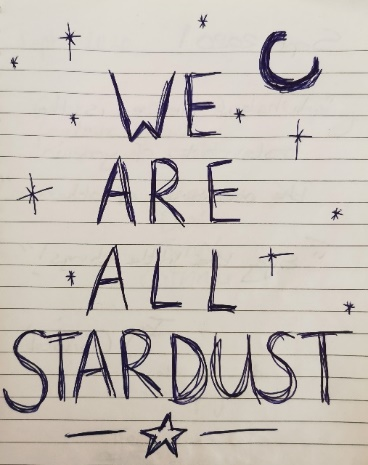 WE
ARE
ALL
STARDUST